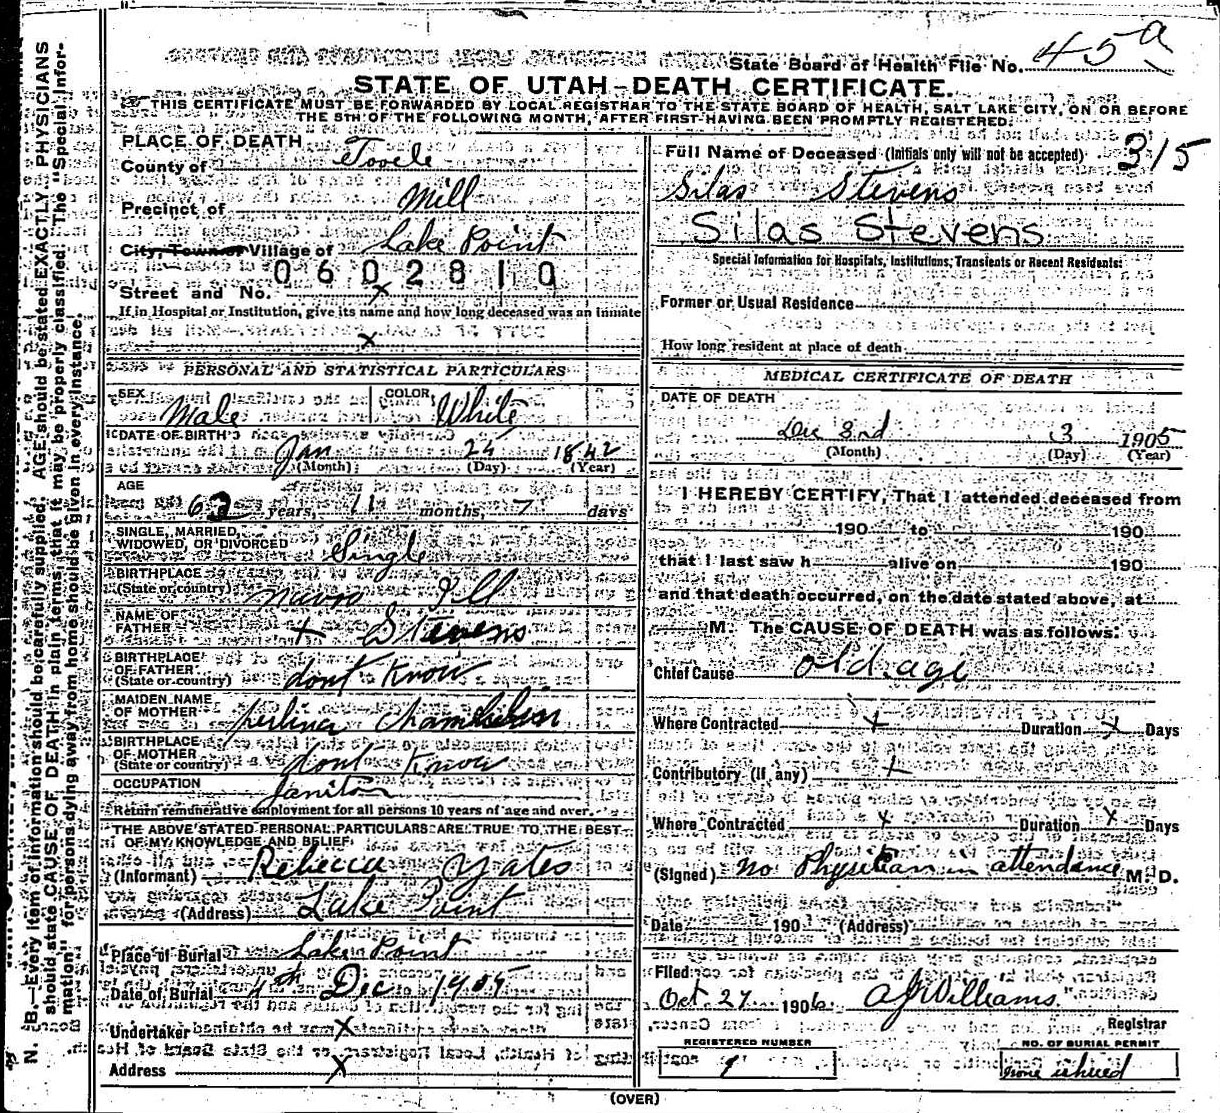 45a
State Board of Health File No.
STATE OF UTAH-DEATH CERTIFICATE.
THIS CERTIFICATE MUST BE FORWARDED BY LOCAL REGISTRAR TO THE STATE BOARD OF HEALTH, SALT LAKE CITY, ON OR BEFORE
THE 5TH OF THE FOLLOWING MONTH, AFTER FIRST HAVING BEEN PROMPTLY REGISTERED.
N. B.—Every item of information should be carefully supplied. AGE should be stated EXACTLY. PHYSICIANS
should state CAUSE OF DEATH in plain terms, that it may be properly classified. The "Special Infor-
mation" for persons dying away from home should be given in every instance.
PLACE OF DEATH
County of Tooele
Precinct of Mill
City, Town or Village of Lake Point
0602810
Street and No. x
If in Hospital or Institution, give its name and how long deceased was an inmate
x
PERSONAL AND STATISTICAL PARTICULARS
SEX Male COLOR White
DATE OF BIRTH
Jan 25 1842
(Month) (Day) (Year)
AGE
62 years, 11 months, 7 days
SINGLE, MARRIED,
WIDOWED, OR DIVORCED Single
BIRTHPLACE
(State or country) Ill
NAME OF
FATHER + Stevens
BIRTHPLACE
OF FATHER
(State or country) dont Know
MAIDEN NAME
OF MOTHER
BIRTHPLACE
OF MOTHER
(State or country) dont Know
OCCUPATION Janitor
Return remunerative employment for all persons 10 years of age and over.
THE ABOVE STATED PERSONAL PARTICULARS ARE TRUE TO THE BEST
OF MY KNOWLEDGE AND BELIEF
(Informant) Rebecca Yates
(Address) Lake Point
Place of Burial Lake Point
Date of Burial 4th Dec 1905
Undertaker x
Address x
315
Full Name of Deceased (Initials only will not be accepted)
Silas Stevens
Silas Stevens
Special Information for Hospitals, Institutions, Transients or Recent Residents:
Former or Usual Residence
How long resident at place of death
MEDICAL CERTIFICATE OF DEATH
DATE OF DEATH
Dec 3rd 3 1905
(Month) (Day) (Year)
I HEREBY CERTIFY, That I attended deceased from
190 to 190
that I last saw h alive on 190
and that death occurred, on the date stated above, at
M. The CAUSE OF DEATH was as follows:
Chief Cause old age
Where Contracted + Duration x Days
Contributory (if any) +
Where Contracted x Duration x Days
(Signed) No Physitian in attendance M. D.
Date 190 (Address)
Filed
Oct. 27 1906 A J Williams
Registrar
REGISTERED NUMBER
1
NO. OF BURIAL PERMIT
none ishued
(OVER)